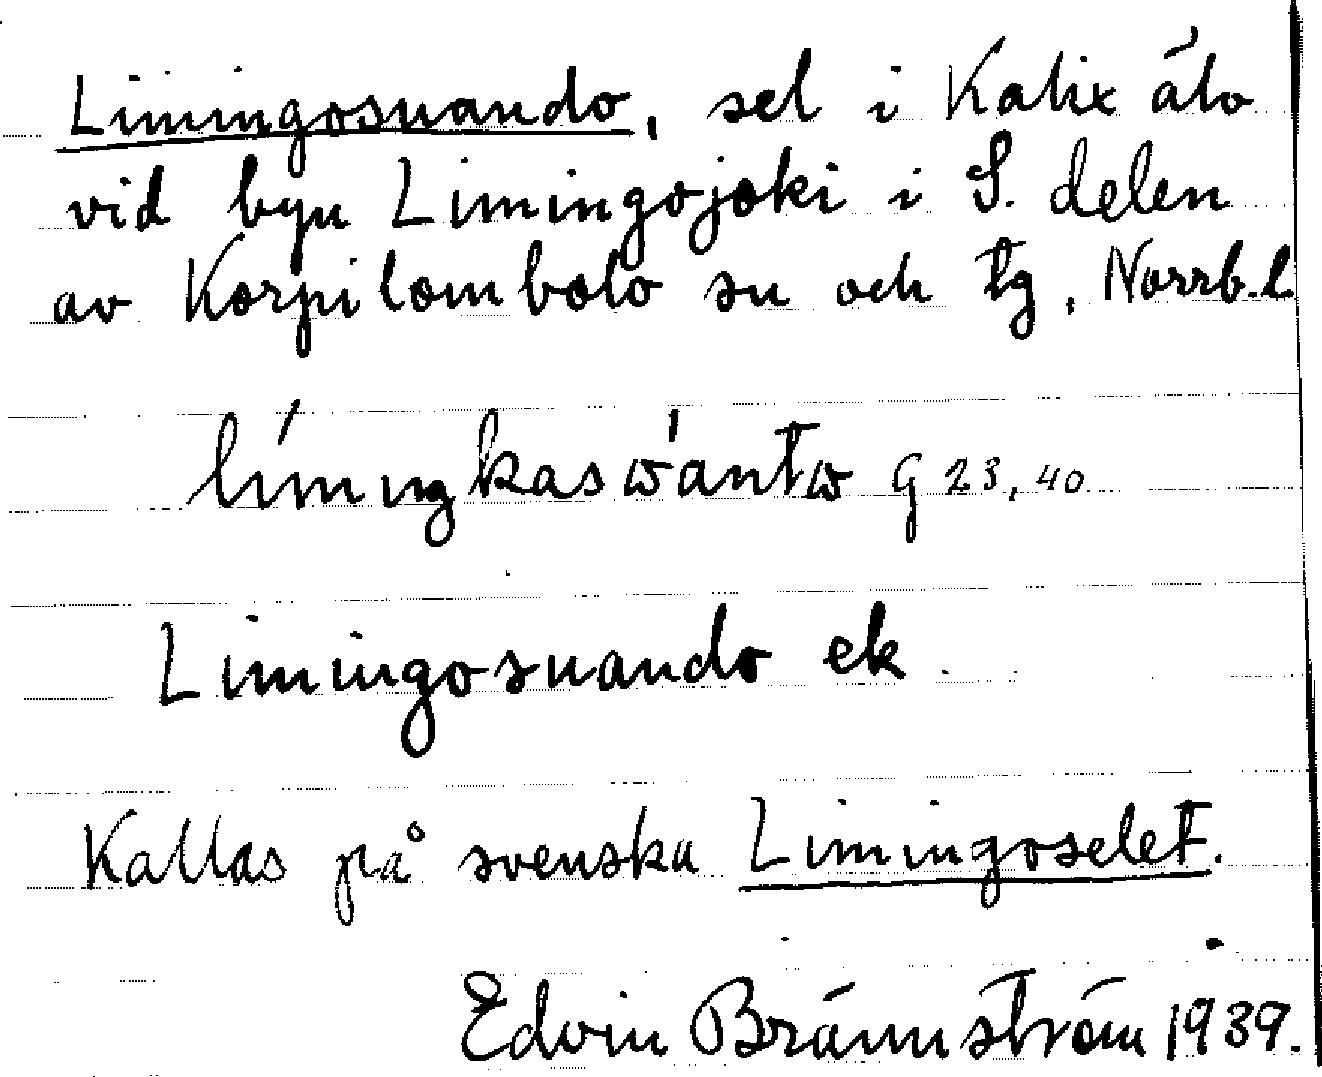 Limingosuando, sel i Kalix älv
vid byn Limingojoki i S. delen
av Korpilombolo sn och tg, Norrb. l.
Limingosuando ek.
Kallas på svenska Limingoselet.
Edvin Brännström 1939.